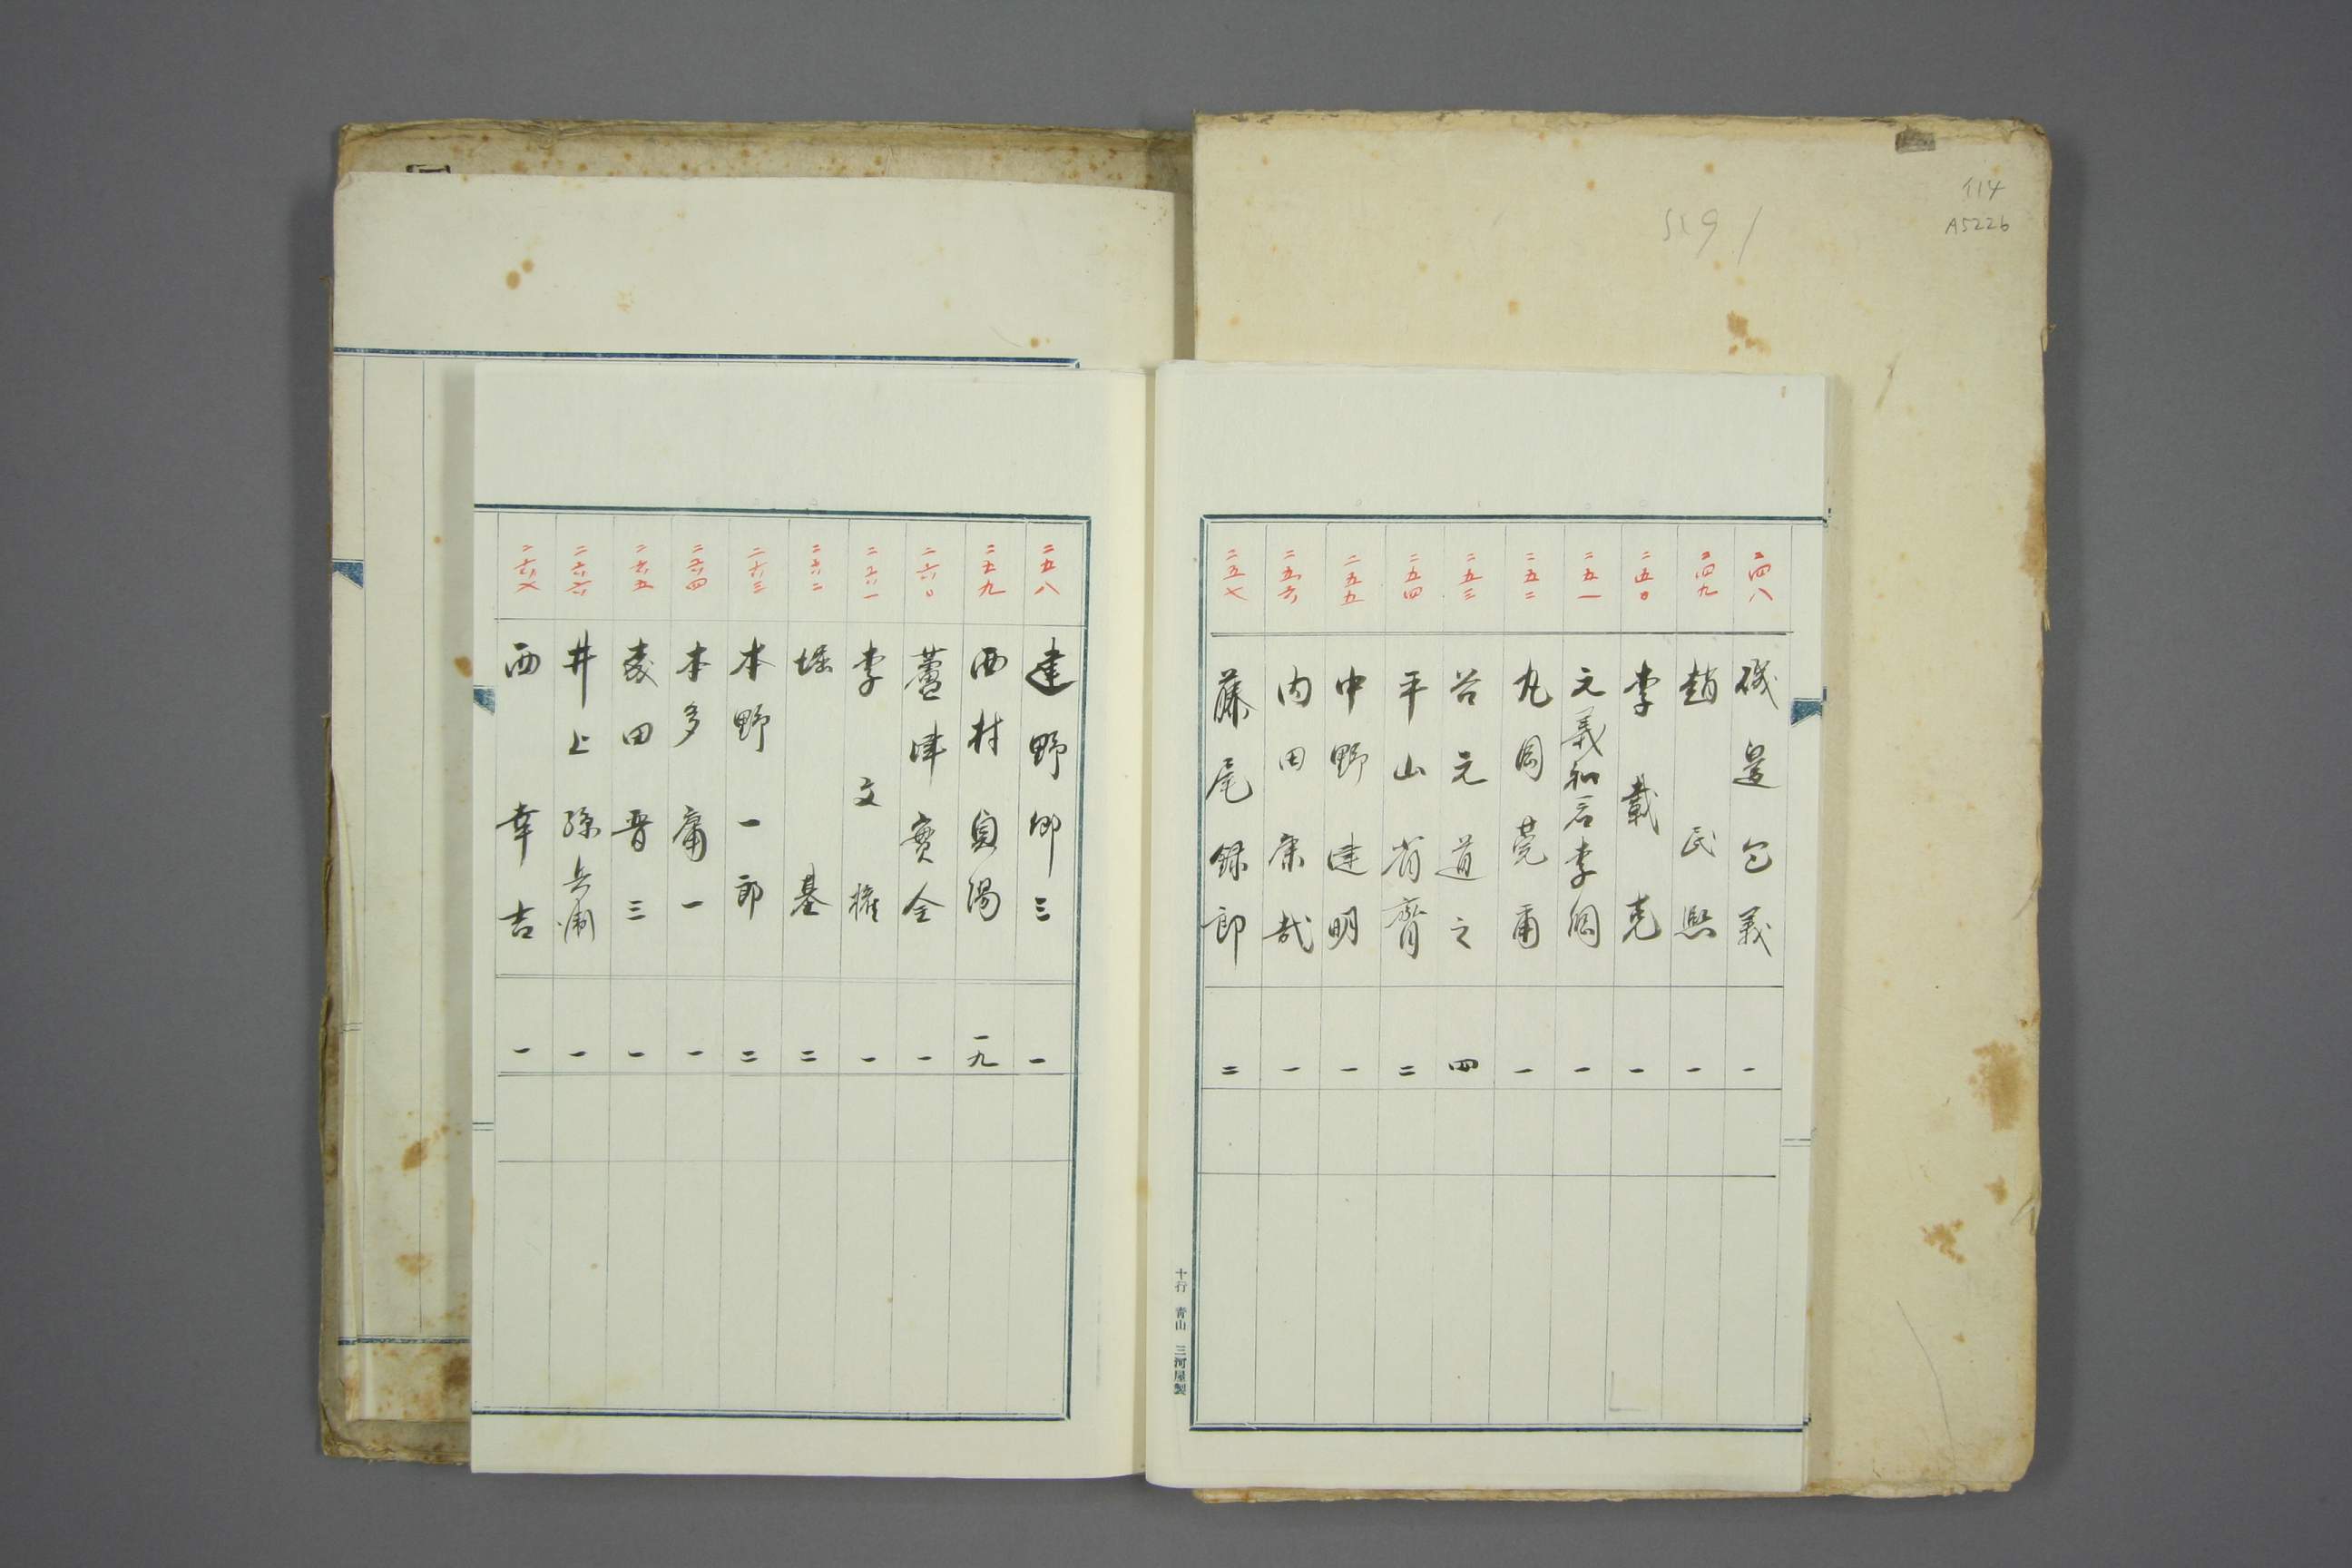 114
A5226
二四八 磯邊包義 一
二四九 趙民熙 一
二五〇 李載克 一
二五一 元義和君李堈 一
二五二 丸岡莞爾 一
二五三 谷元道之 四
二五四 平山省齋 二
二五五 中野健明 一
二五六 内田康哉 一
二五七 藤尾録郎 二
十行 青山 三河屋製
二五八 建野郷三 一
二五九 西村貞陽 一九
二六〇 蘆津實全 一
二六一 李文權 一
二六二 堀基 二
二六三 本野一郎 二
二六四 本多庸一 一
二六五 麦田晋三 一
二六六 井上孫兵衛 一
二六七 西幸吉 一